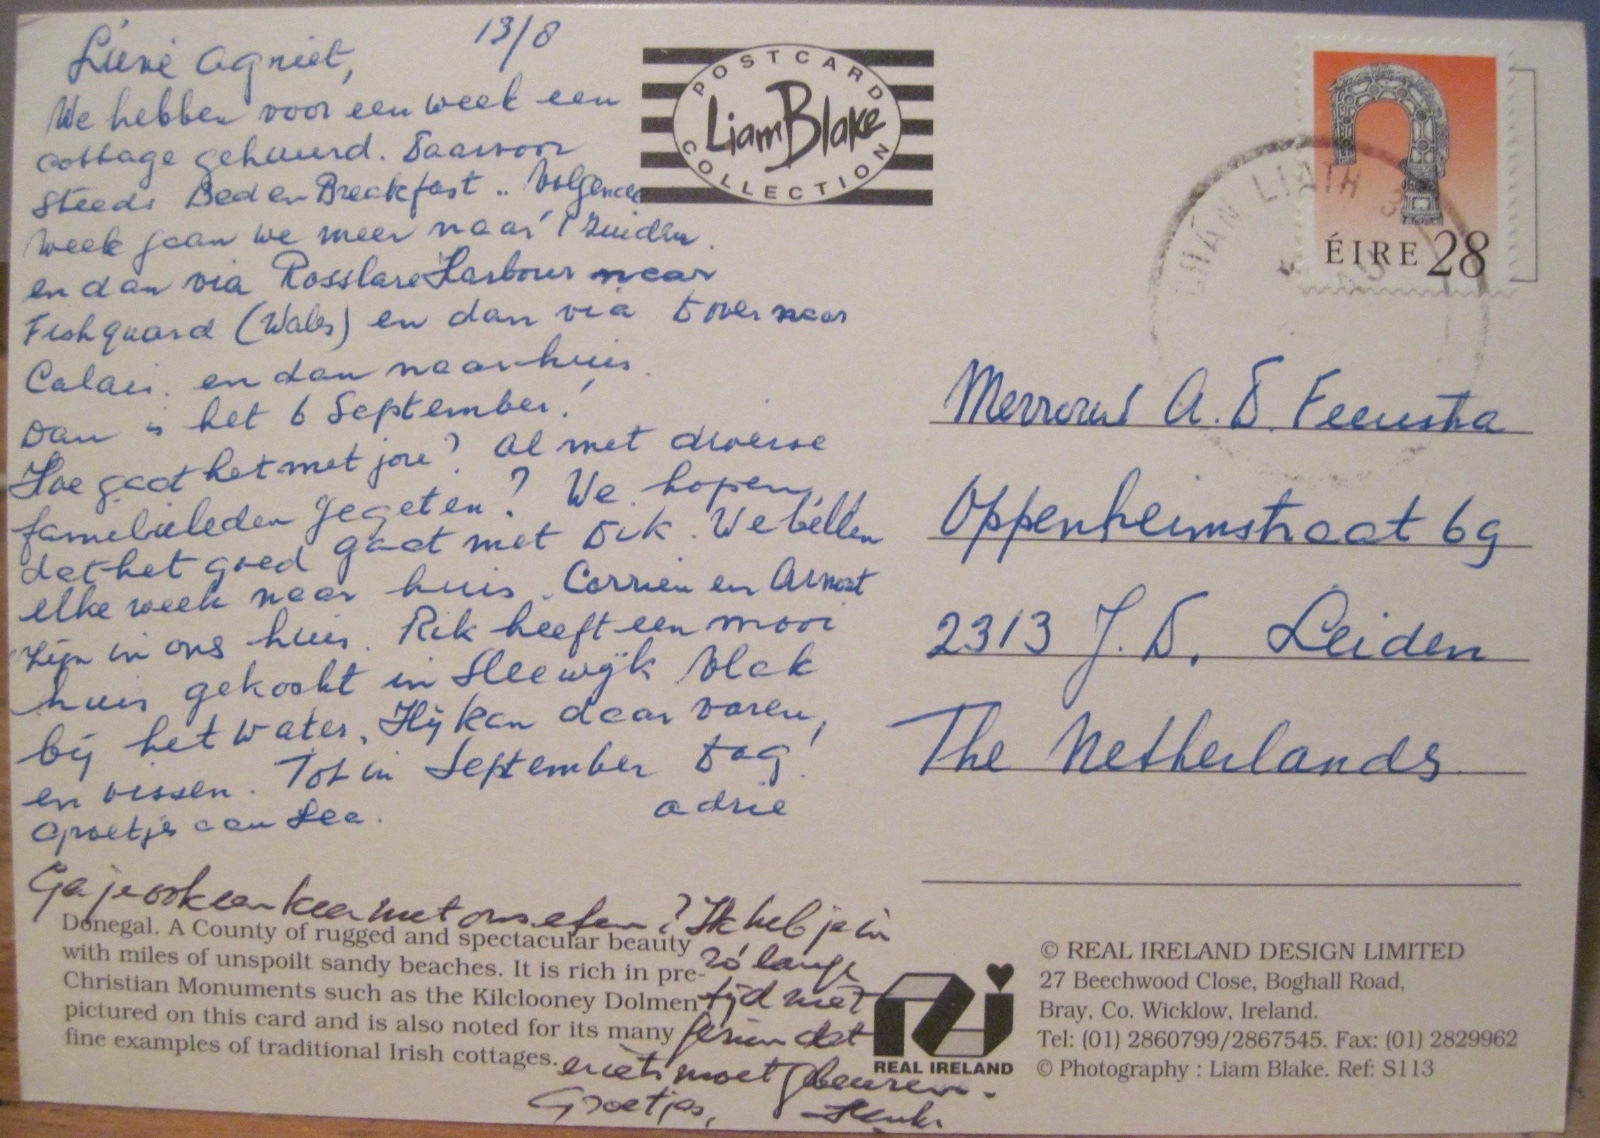 13/8
Lieve Agniet,
We hebben voor een week een
cottage gehuurd. Daarvoor
steeds Bed en Breakfast .. Volgende
week gaan we meer naar 't Zuiden.
en dan via Rosslare Harbour naar
Fishguard (Wales) en dan via Dover naar
Calais. en dan naar huis.
Dan is het 6 September!
Hoe gaat het met jou? Al met diverse
familieleden gegeten? We hopen
dat het goed gaat met Dik. We bellen
elke week naar huis. Corrien en Arnout
zijn in ons huis. Rik heeft een mooi
huis gekocht in Sleewijk vlak
bij het water. Hij kan daar varen,
en vissen. Tot in September Dag!
Groetjes aan Lea. Adrie
Ga je ook een keer met ons eten? Ik heb je in
zo' lange
tijd niet
gezien dat
er iets moet gebeuren.
Groetjes, Henk
POSTCARD
Liam Blake
COLLECTION
ÉIRE 28
CUAN LIATH 3
Mevrouw A. D. Feenstra
Oppenheimstraat 69
2313 J.D. Leiden
The Netherlands
Donegal. A County of rugged and spectacular beauty
with miles of unspoilt sandy beaches. It is rich in pre-
Christian Monuments such as the Kilclooney Dolmen
pictured on this card and is also noted for its many
fine examples of traditional Irish cottages.
REAL IRELAND
© REAL IRELAND DESIGN LIMITED
27 Beechwood Close, Boghall Road,
Bray, Co. Wicklow, Ireland.
Tel: (01) 2860799/2867545. Fax: (01) 2829962
© Photography : Liam Blake. Ref: S113